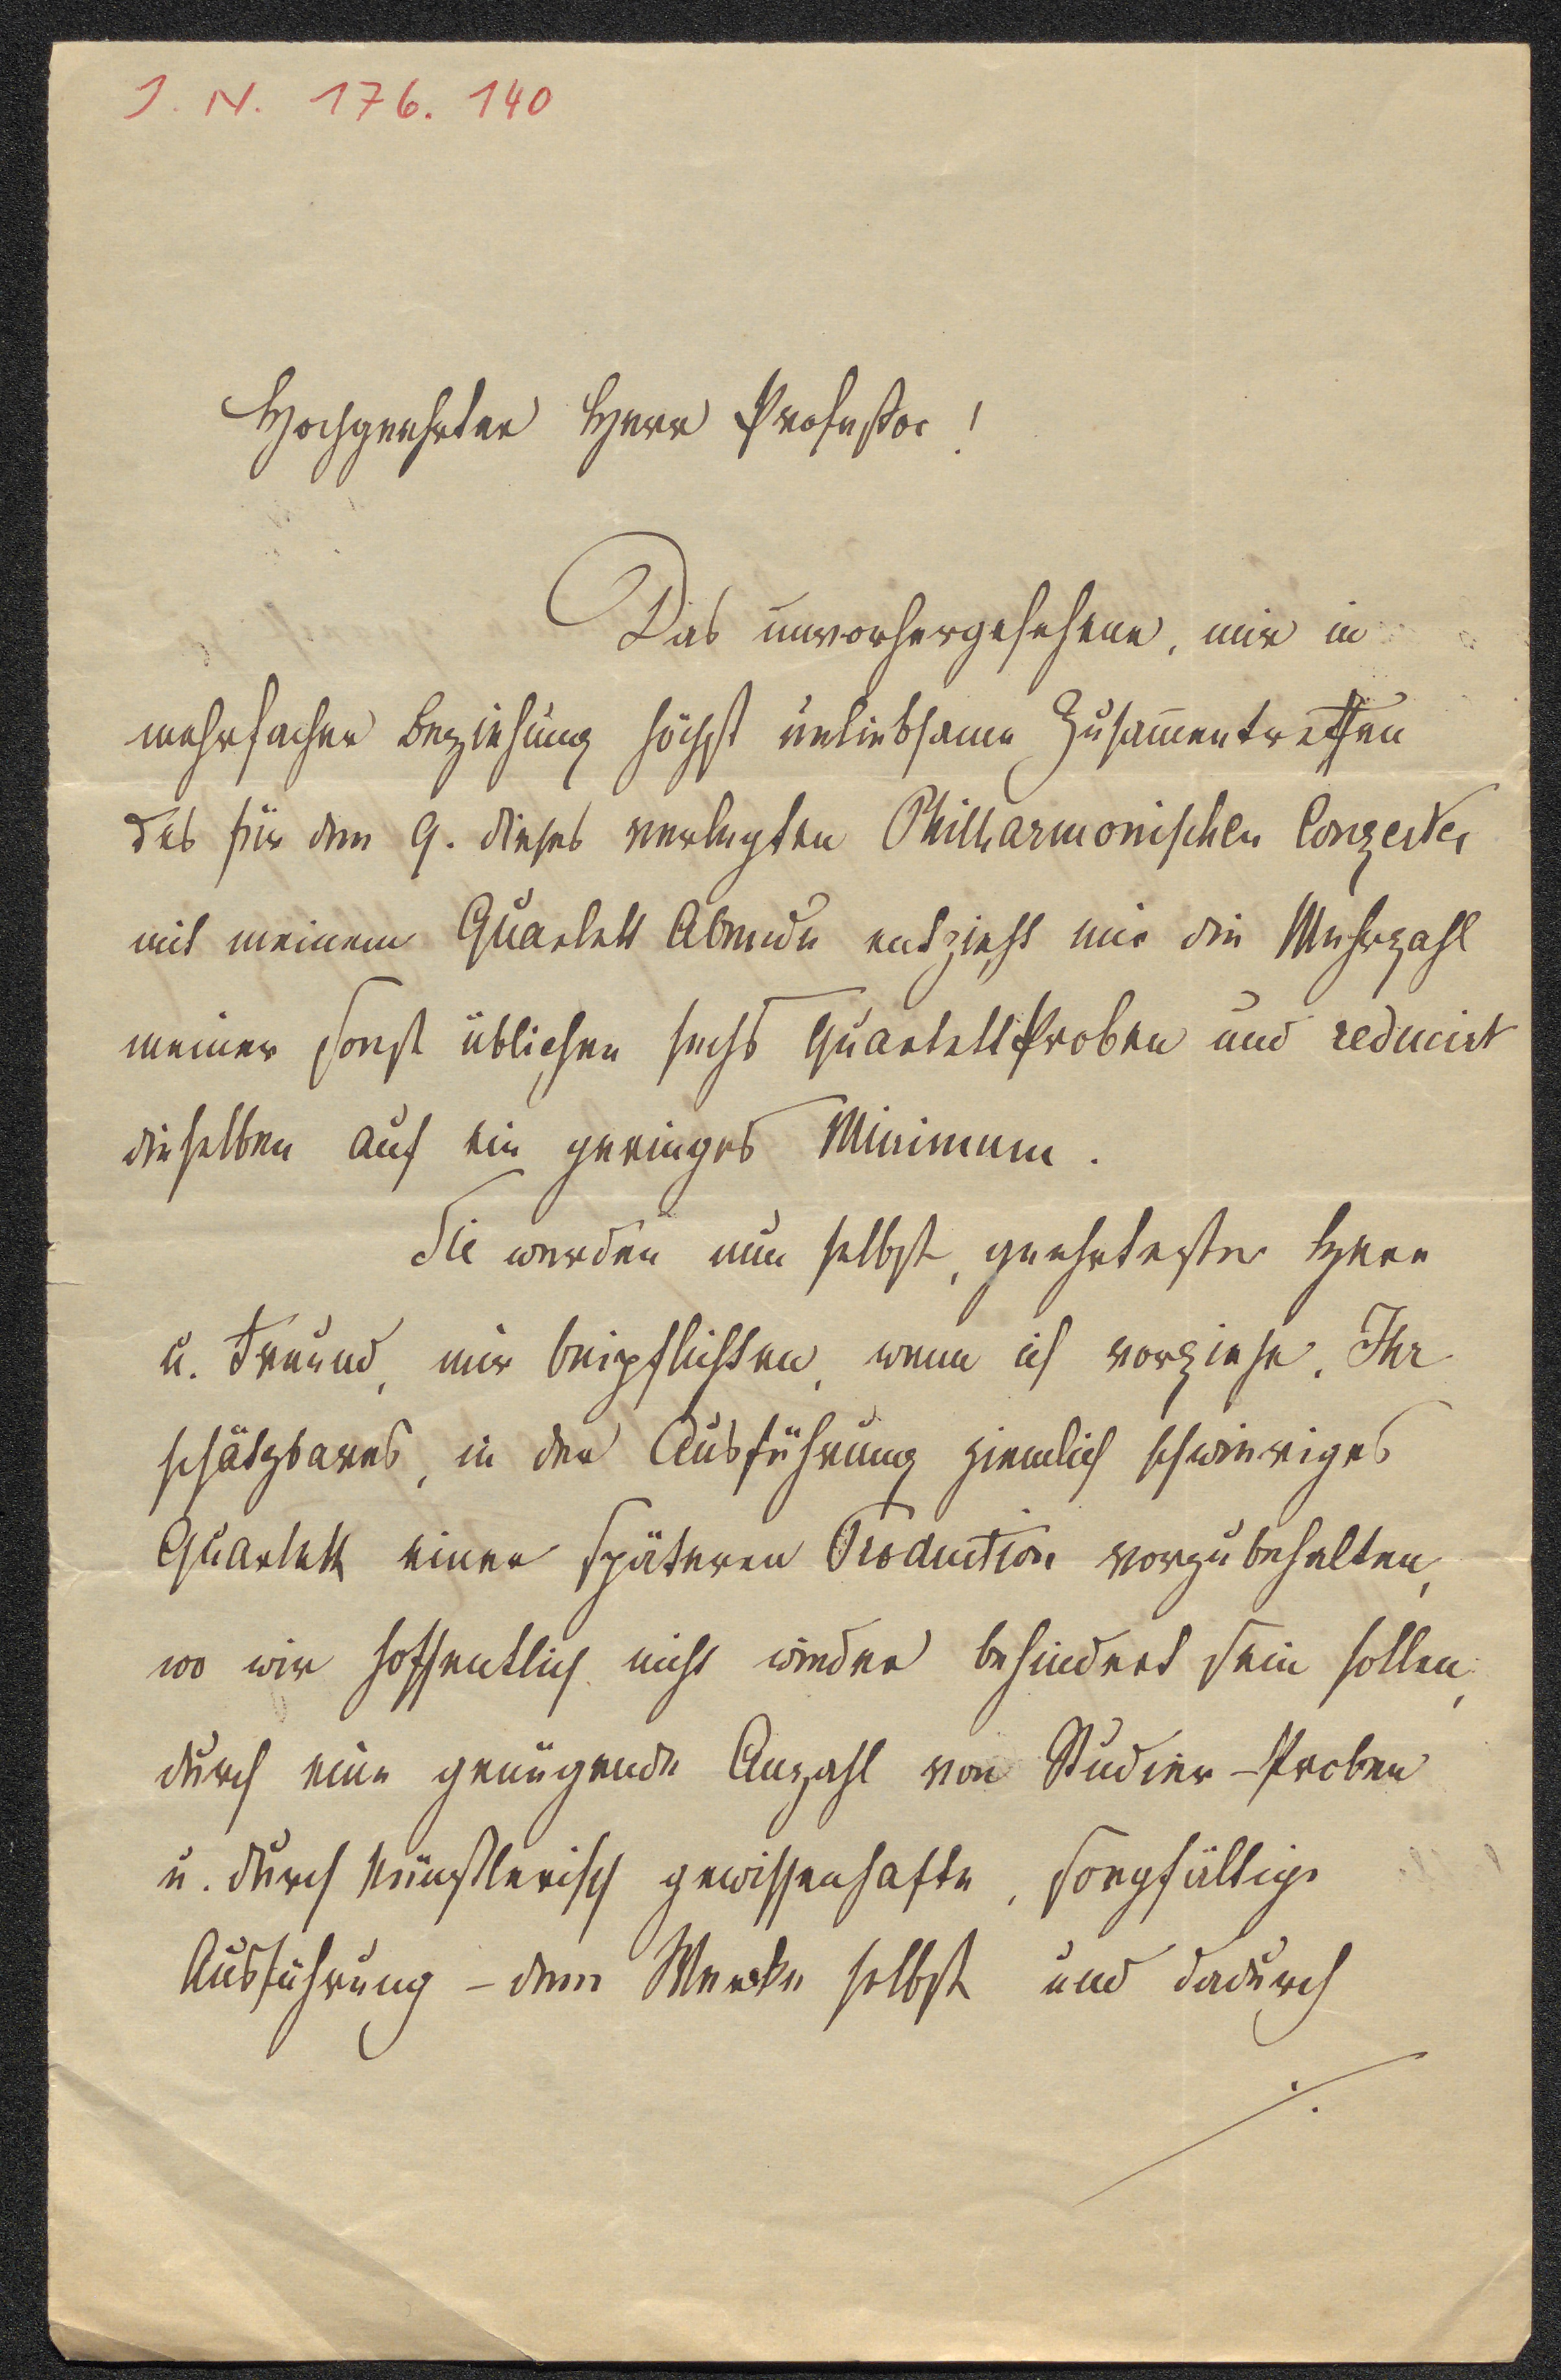 J. N. 176. 140
Hochgeehrter Herr Professor!
Das unvorhergesehene, mir in
mehrfacher Beziehung höchst unliebsame Zusam̄entreffen
des für den 9. dieses verlegten Philharmonischen Conzertes
mit meinem Quartett Abende entzieht mir die Mehrzahl
meiner sonst üblichen sechs Quartett Proben und reducirt
dieselben auf ein geringes Minimum.
Sie werden nun selbst, geehrtester Herr
u. Freund, mir beipflichten, wenn ich vorziehe, Ihr
schätzbares, in der Ausführung ziemlich schwieriges
Quartett einer späteren Production vorzubehalten,
wo wir hoffentlich nicht wieder behindert sein sollen,
durch eine genügende Anzahl von Studier-Proben
u. durch künstlerisch gewissenhafte, sorgfältige
Ausführung – dem Werke selbst und dadurch
./.